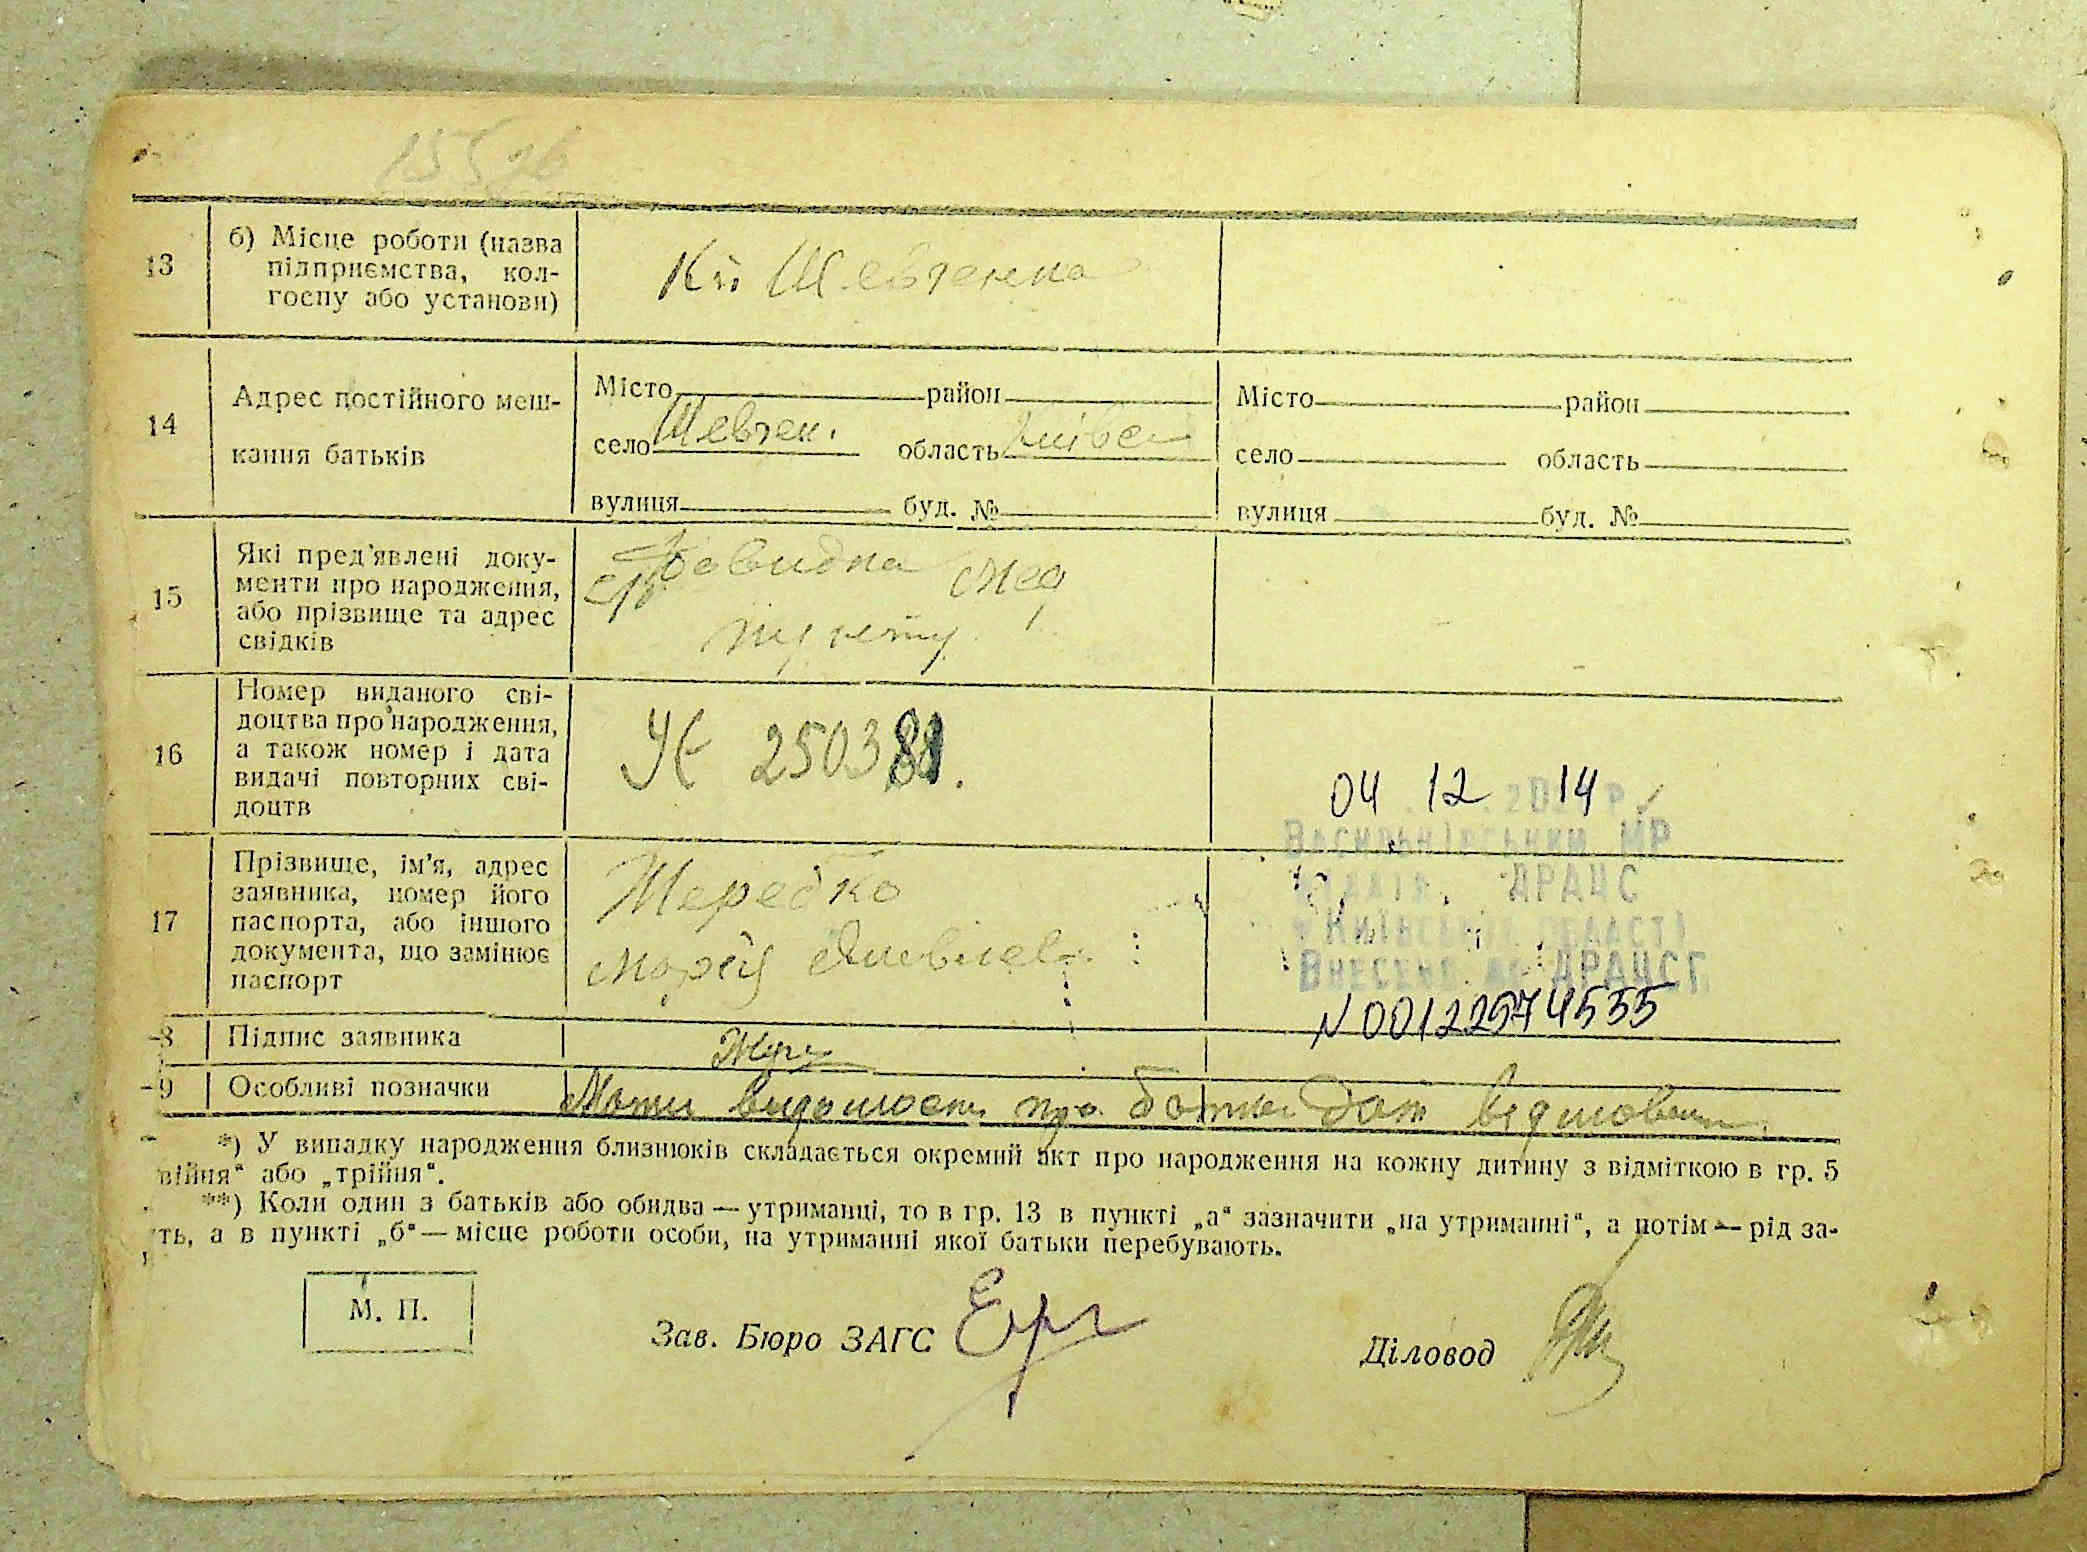 13
б) Місце роботи (назва
підприємства, кол-
госпу або установи)
Шевченка
14
Адрес постійного меш-
кання батьків
Місто район
село Шевчен. область Київс
вулиця буд. №
Місто район
село область
вулиця буд. №
15
Які пред'явлені доку-
менти про народження,
або прізвище та адрес
свідків
Довидка мед
пункту
16
Номер виданого сві-
доцтва про народження,
а також номер і дата
видачі повторних сві-
доцтв
250388.
04 12 2014 р.
Васильківський МР
відділ ДРАЦС
Київській області
Внесено до ДРАЦСГ
N 00122574555
17
Прізвище, ім'я, адрес
заявника, номер його
паспорта, або іншого
документа, що замінює
паспорт
Жередко
Марія
-8
Підпис заявника
-9
Особливі позначки
Мати видомости про батька дат видмовил
*) У випадку народження близнюків складається окремий акт про народження на кожну дитину з відміткою в гр. 5
війня“ або „трійня“.
**) Коли один з батьків або обидва — утриманці, то в гр. 13 в пункті „а“ зазначити „на утриманні“, а потім — рід за-
ть, а в пункті „б“ — місце роботи особи, на утриманні якої батьки перебувають.
М. П.
Зав. Бюро ЗАГС
Діловод